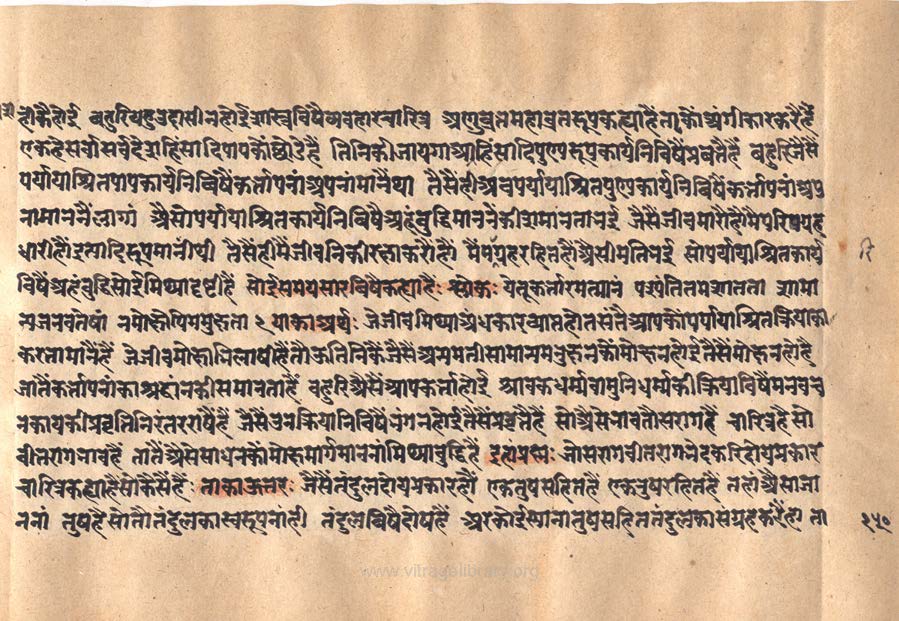 होकै होई बहुरि बहुत उदासीन होई शास्त्रविषै व्यवहारचारित्र अणुव्रतमहाव्रतरूप कह्या है ताकौं अंगीकार करै है
एकदेस वा सर्वदेश हिंसादि पापकौं छोडै है तिनिकी जायगा अहिंसादि पुण्यरूप कार्यनिविषैं प्रवर्तै है बहुरि जैसैं
पर्यायाश्रित पापकार्यनिविषैं कर्तापनां अपनां मानै था तैसैं ही अब पर्यायाश्रित पुण्यकार्यनिविषैं कर्तापनां अपु
नां माननैं लागां अैसैं पर्यायाश्रितकार्यनिविषै अहंबुद्धि माननैंकी समानता भई जैसैं जीव मारौं हौं मैं परिग्रह
धारी हौं इत्यादि रूप मानी थी तैसैं ही मैं जीवनिकी रक्षा करौं हौं मैं परिग्रहरहित हौं अैसी भई सो पर्यायाश्रित कार्य
विषैं अहंबुद्धि सोई मिथ्यादृष्टी है सोई समयसारविषै कह्या है श्लोक येतू कर्तारमत्मानं पश्यंति तमशातता शामा
न्यजनवतेषां नमोक्षोपि मुमुक्षुता १ याका अर्थ जे जीव मिथ्या अंधकार व्याप्त होत संतै आपकौं पर्यायाश्रित क्रियाका
करता मांनै है ते जीव मोक्षाभिलाषी है तौऊ तिनिकै जैसैं अन्यमती सामान्य मनुष्यनिकौं मोक्ष न होई तैसैं मोक्ष न हो है
जातैं कर्तापनांका श्रद्धांनकी समानता है बहुरि अैसैं आप कर्ता होई श्रावकधर्म्म वा मुनिधर्म्मकी क्रियाविषैं मन वच
नकायकी प्रवृत्ति निरंतर राषै है जैसैं उन क्रियानिविषैं भंग न होई तैसैं प्रवर्तै है सो अैसे भाव तौ सराग है चारित्र है सो
वीतरागभाव है तातैं अैसे साधनकौं मोक्षमार्ग माननां मिथ्याबुद्धि है इहां प्रश्न जो सराग वीतराग भेद करि दोय प्रकार
चारित्र कह्या है सो कैसैं है ताका ऊत्तर जैसैं तंदुल दोय प्रकार हैं एक तुष सहित है एक तुष रहित है तहां अैसा जा
ननां तुष है सो तौ तंदुलका स्वरूप नांही तंदुलविषै दोष है अर कोई स्याना तुष सहित तंदुलका संग्रह करै था ता
२५०
www.vitragelibrary.org